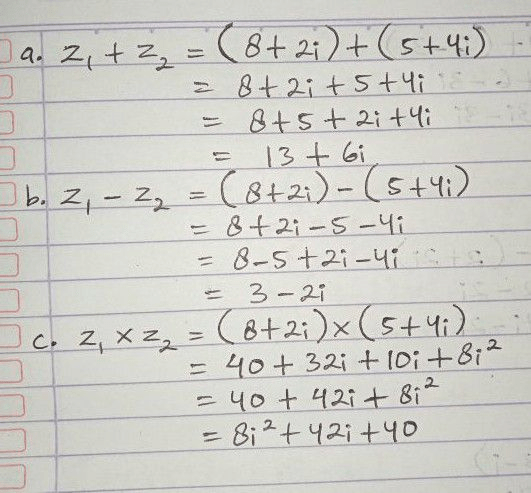 a. z₁ + z₂ = (8+2i)+(5+4i)
= 8+2i+5+4i
= 8+5+2i+4i
= 13+6i
b. z₁ - z₂ = (8+2i)-(5+4i)
= 8+2i-5-4i
= 8-5+2i-4i
= 3-2i
c. z₁ × z₂ = (8+2i)×(5+4i)
= 40+32i+10i+8i²
= 40+42i+8i²
= 8i²+42i+40